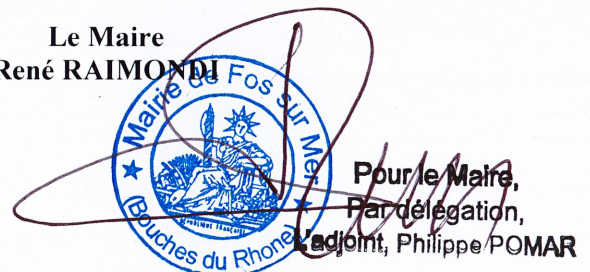 Le Maire
René RAIMONDI
Mairie de Fos sur Mer
REPUBLIQUE FRANÇAISE
(Bouches du Rhone)
Pour le Maire,
Par délégation,
L'adjoint, Philippe POMAR